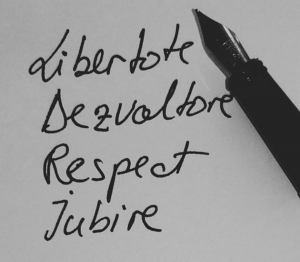 Libertate
Dezvoltare
Respect
Iubire